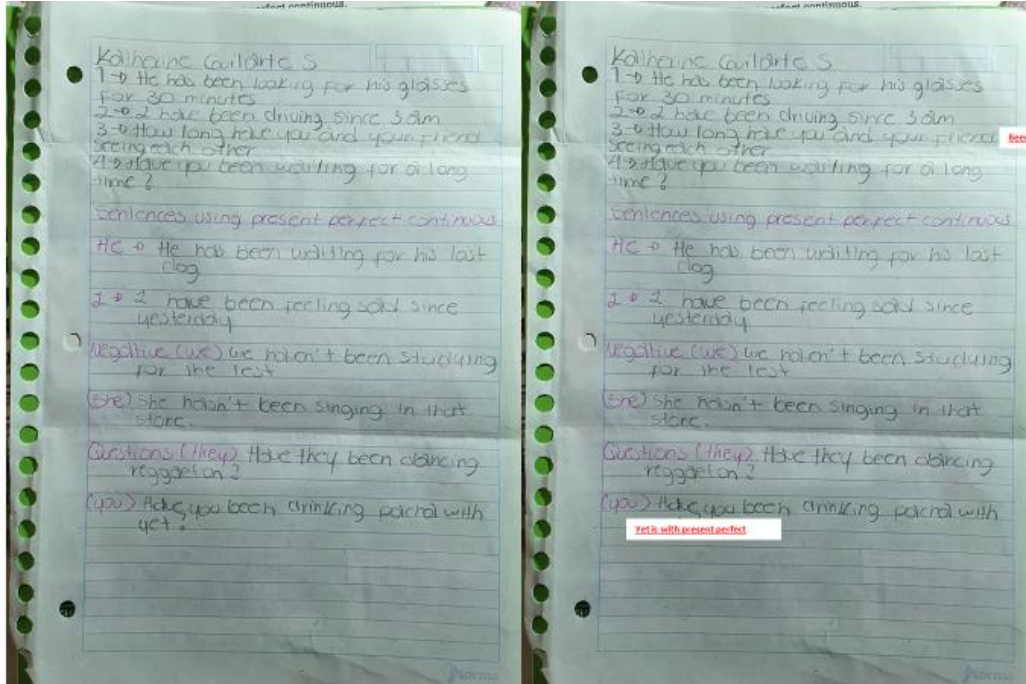 perfect continuous.
Katherine Guilarte S
1→ He has been looking for his glasses
for 30 minutes
2→ I have been driving since 3 am
3→ How long have you and your friend
seeing each other
4→ Have you been waiting for a long
time?
Sentences using present perfect continuous
He → He has been waiting for his lost
dog
I → I have been feeling sad since
yesterday
Negative (we) we haven't been studying
for the test
(she) She hasn't been singing in that
store.
Questions (they) Have they been dancing
reggaeton?
(you) Have you been drinking with
yet?
Norma
perfect continuous.
Katherine Guilarte S
1→ He has been looking for his glasses
for 30 minutes
2→ I have been driving since 3 am
3→ How long have you and your friend
Been
seeing each other
4→ Have you been waiting for a long
time?
Sentences using present perfect continuous
He → He has been waiting for his lost
dog
I → I have been feeling sad since
yesterday
Negative (we) we haven't been studying
for the test
(she) She hasn't been singing in that
store.
Questions (they) Have they been dancing
reggaeton?
(you) Have you been drinking with
Yet is with present perfect
Norma